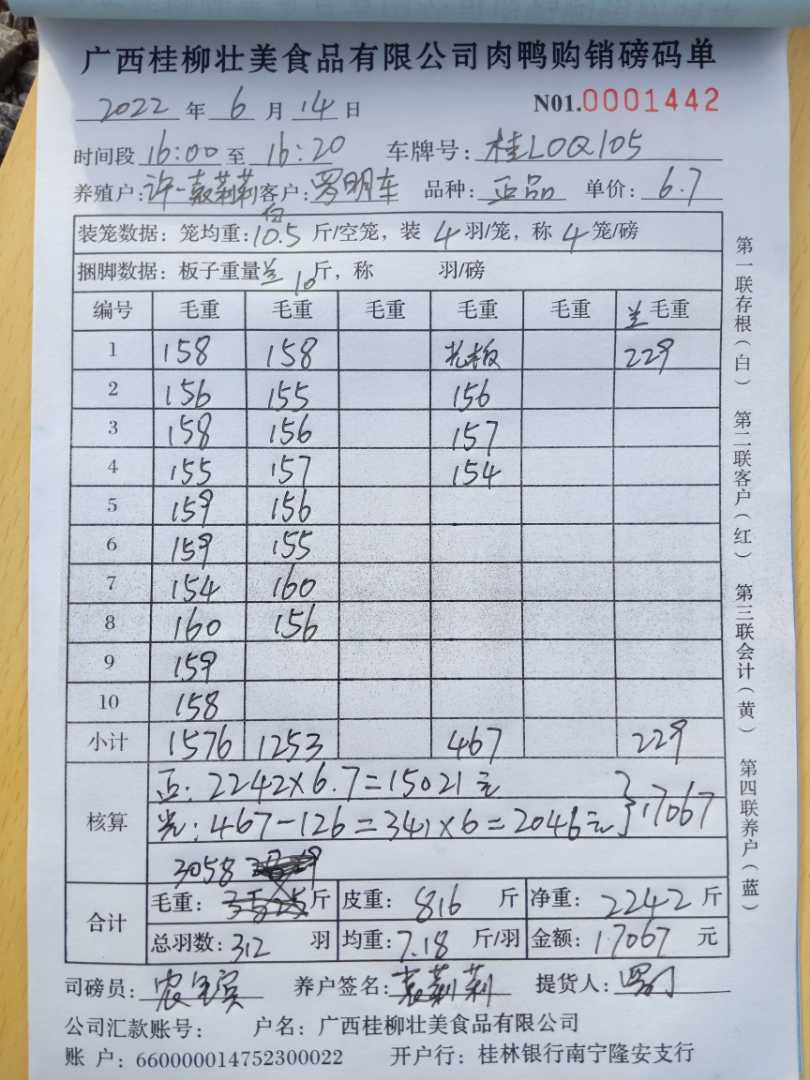 广西桂柳壮美食品有限公司肉鸭购销磅码单
2022 年 6 月 14 日 N01.0001442
时间段 16:00 至 16:20 车牌号: 桂LOQ105
养殖户: 许一袁莉莉 客户: 罗明车 品种: 正品 单价: 6.7
装笼数据: 笼均重: 10.5 斤/空笼, 装 4 羽/笼, 称 4 笼/磅
捆脚数据: 板子重量 10 斤, 称 羽/磅
编号 毛重 毛重 毛重 毛重 毛重 毛重
1 158 158 光板 229
2 156 155 156
3 158 156 157
4 155 157 154
5 159 156
6 159 155
7 154 160
8 160 156
9 159
10 158
小计 1576 1253 467 229
核算
正: 2242×6.7=15021元
光: 467-126=341×6=2046元 } 17067
3058
合计
毛重: 斤 皮重: 816 斤 净重: 2242 斤
总羽数: 312 羽 均重: 7.18 斤/羽 金额: 17067 元
司磅员: 农宝宾 养户签名: 袁莉莉 提货人: 罗
公司汇款账号: 户名: 广西桂柳壮美食品有限公司
账户: 660000014752300022 开户行: 桂林银行南宁隆安支行
第一联存根(白) 第二联客户(红) 第三联会计(黄) 第四联养户(蓝)